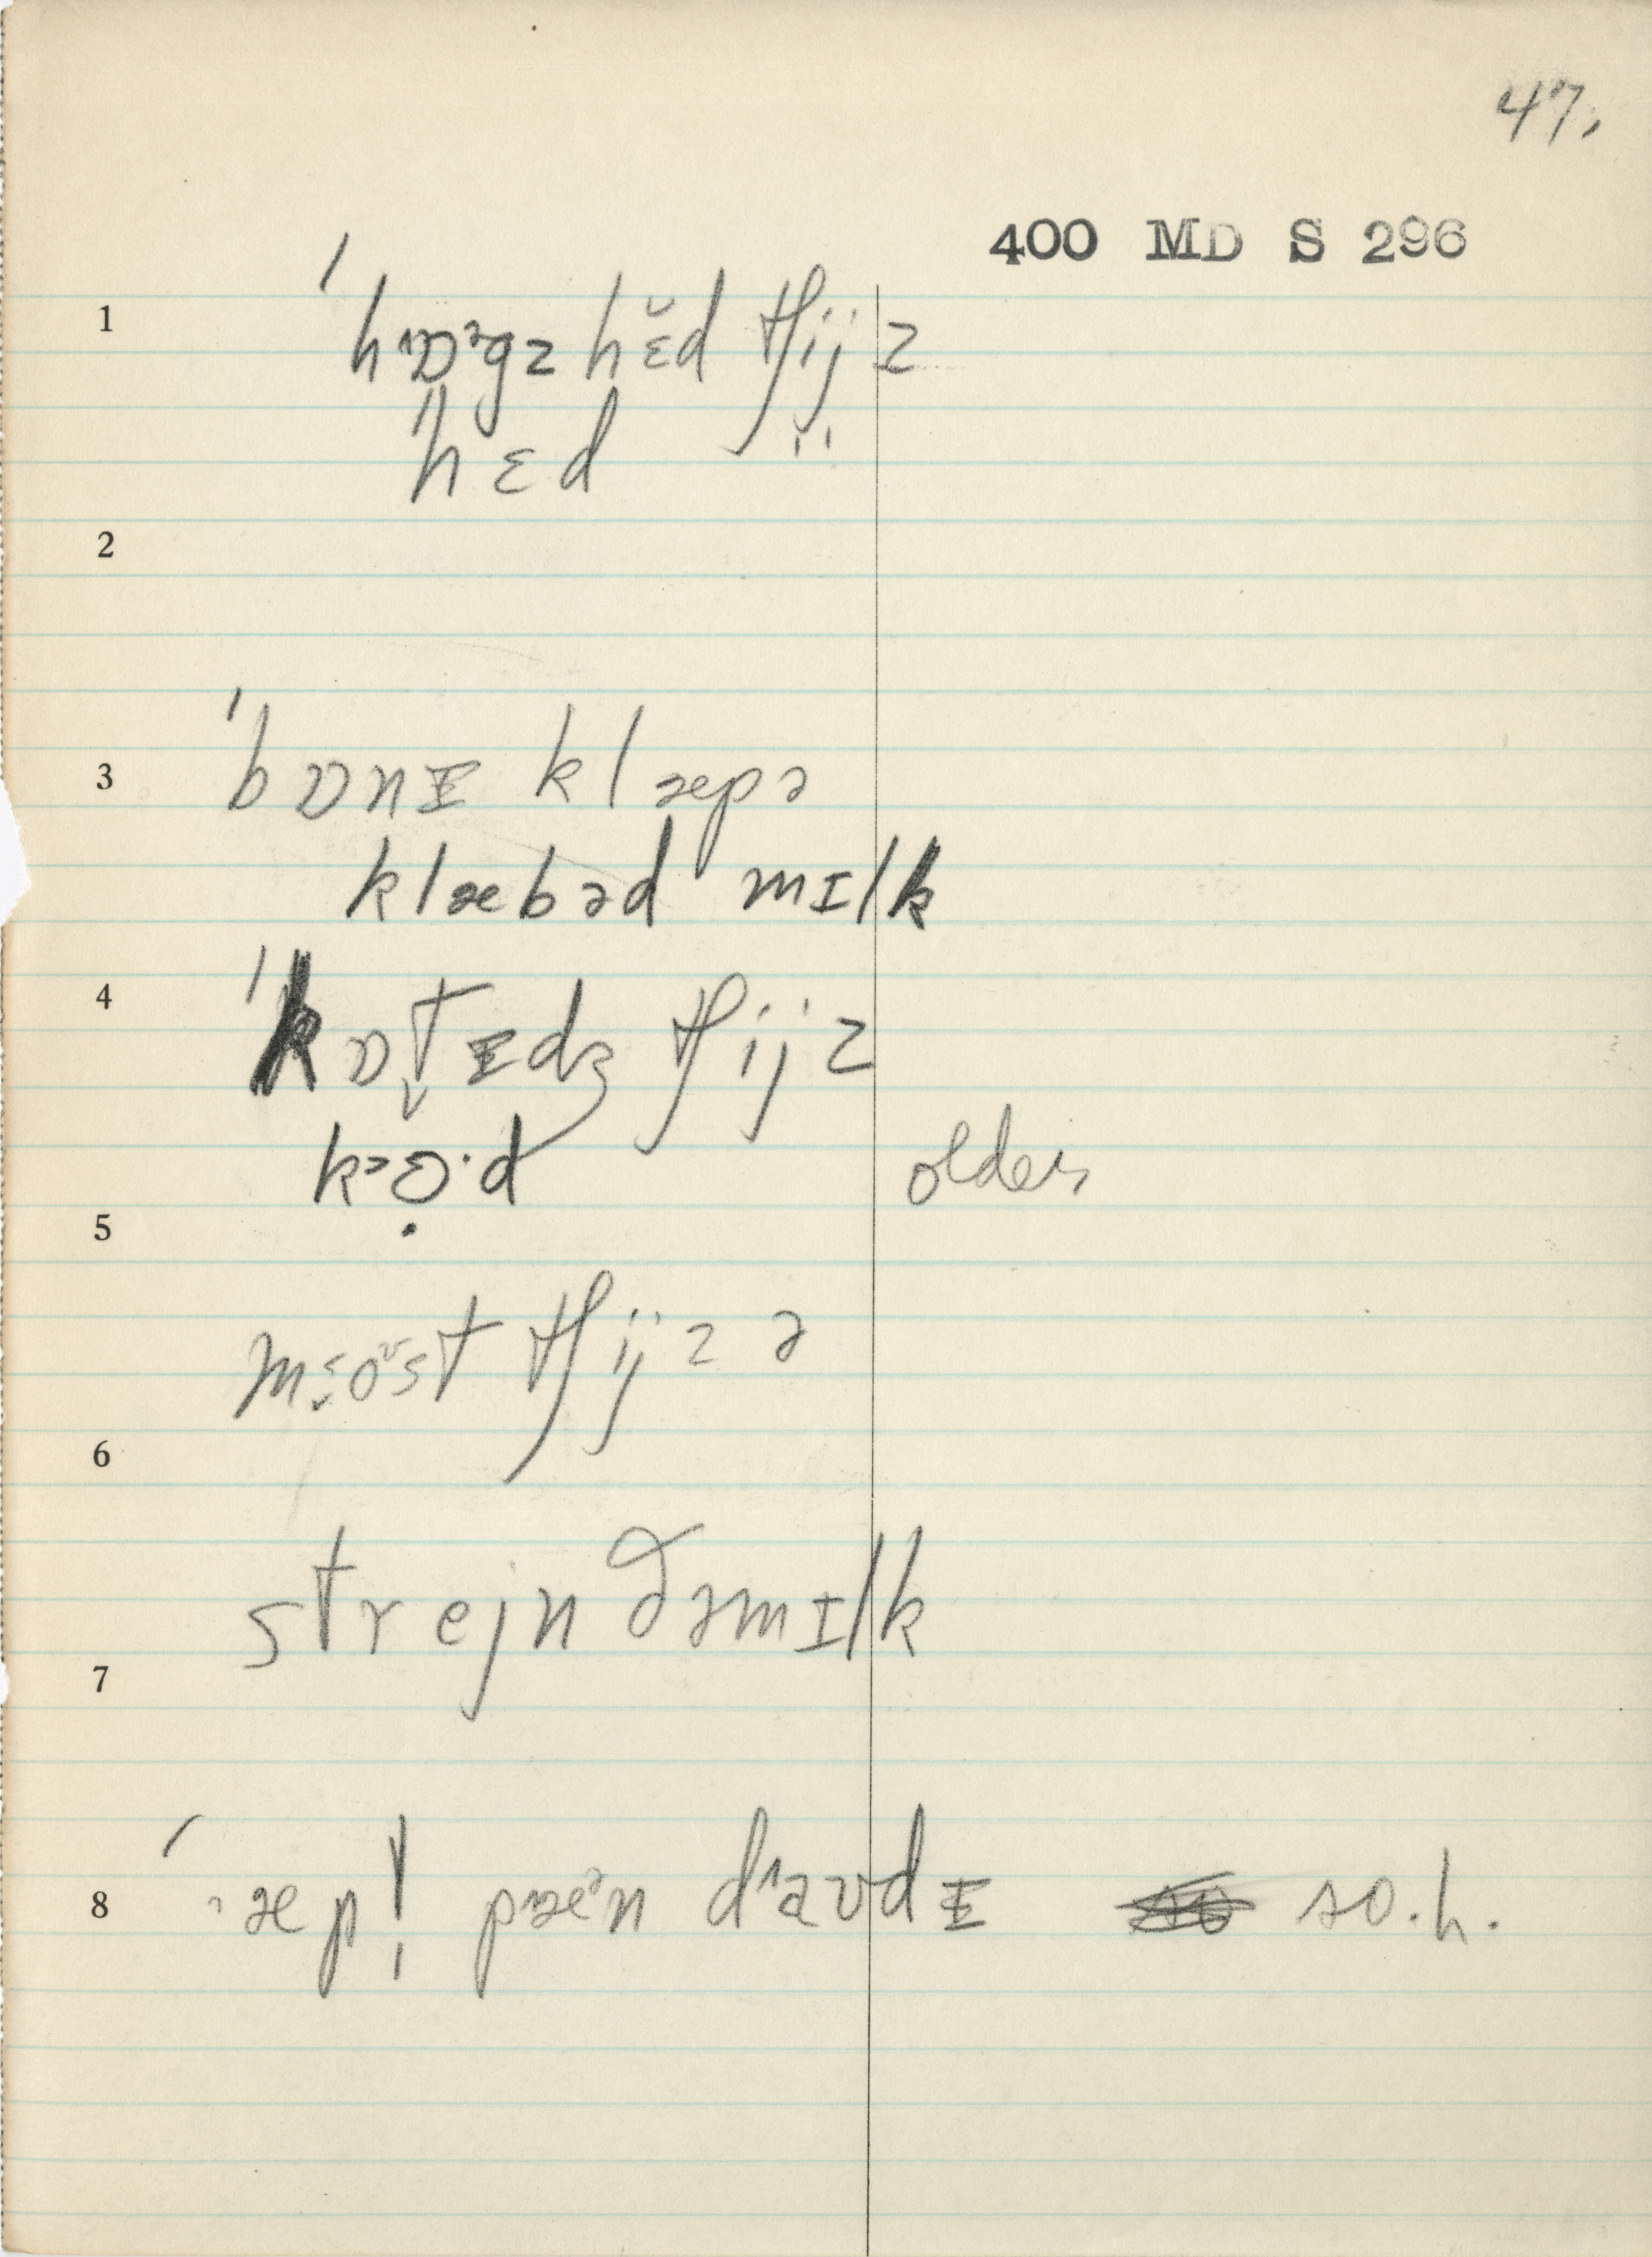 47.
400 MD S 296
1 ˈhɒᵊgz hɛ̆d tʃijz
ˈhɛd
2
3 ˈbɒnᵻ klæpə
klæbəd mɪlk
4 ˈkɒt̬ᵻdʒ tʃijz
k>ɔ̣·d older,
5
m>̬oᶷst tʃijz ə
6
strejn ðəmɪlk
7
8 ˈæp! pæᵊn daʊdᵻ so.h.